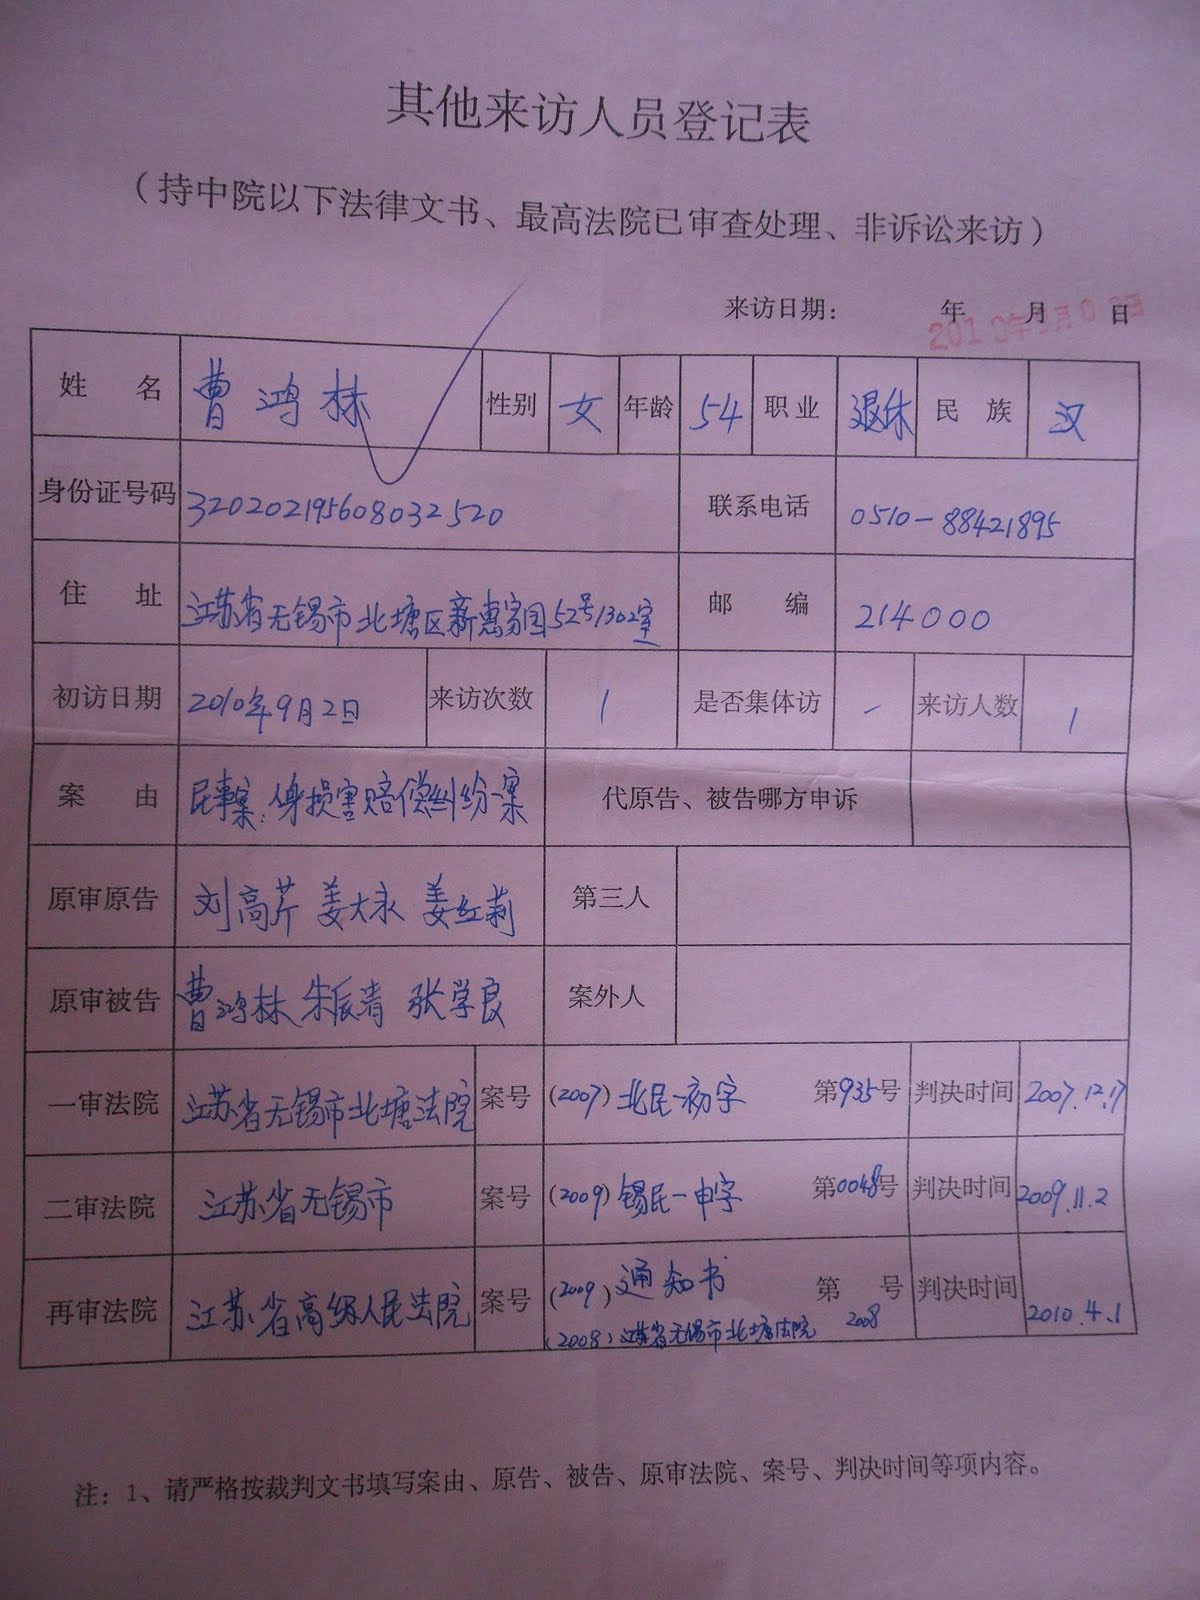 其他来访人员登记表
（持中院以下法律文书、最高法院已审查处理、非诉讼来访）
来访日期： 年 月 日
姓 名 曹鸿林 性别 女 年龄 54 职业 退休 民 族 汉
身份证号码 320202195608032520 联系电话 0510-88421895
住 址 江苏省无锡市北塘区新惠家园52号1302室 邮 编 214000
初访日期 2010年9月2日 来访次数 1 是否集体访 - 来访人数 1
案 由 民事案：人身损害赔偿纠纷案 代原告、被告哪方申诉
原审原告 刘高芹 姜大永 姜红莉 第三人
原审被告 曹鸿林 朱辰清 张学良 案外人
一审法院 江苏省无锡市北塘法院 案号 (2007) 北民一初字 第935号 判决时间 2007.12.17
二审法院 江苏省无锡市 案号 (2009) 锡民一申字 第0048号 判决时间 2009.11.2
再审法院 江苏省高级人民法院 案号 (2009) 通知书 第 号 判决时间 2010.4.1
(2008) 江苏省无锡市北塘法院 2008
注：1、请严格按裁判文书填写案由、原告、被告、原审法院、案号、判决时间等项内容。